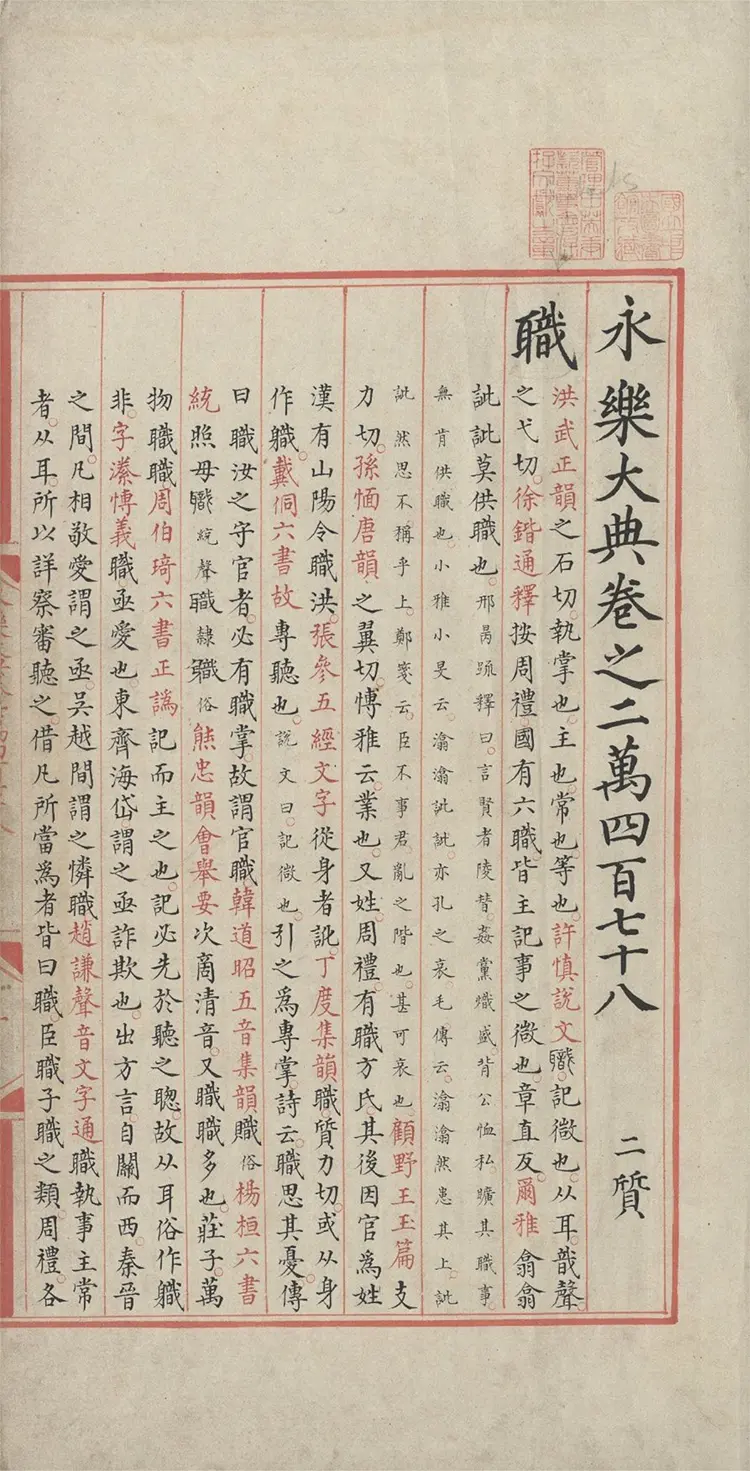 永樂大典卷之二萬四百七十八 二質
職
洪武正韻之石切。執掌也。主也。常也。等也。許慎說文職。記微也。从耳戠聲。
之弋切。徐鍇通釋按周禮。國有六職。皆主記事之微也。章直反。爾雅翕翕
訿訿莫供職也。邢昺疏釋曰。言賢者陵替。姦黨熾盛。背公恤私。曠其職事。
無肯供職也。小雅小旻云。潝潝訿訿。亦孔之哀。毛傳云。潝潝然患其上。訿
訿然思不稱乎上。鄭箋云。臣不事君。亂之階也。甚可哀也。顧野王玉篇支
力切。孫愐唐韻之翼切。博雅云。業也。又姓。周禮。有職方氏。其後因官為姓
漢有山陽令職洪。張參五經文字從身者訛。丁度集韻職。質力切。或从身
作軄。戴侗六書故專聽也。說文曰。記微也。引之為專掌。詩云。職思其憂。傳
曰職汝之守官者。必有職掌。故謂官職韓道昭五音集韻俗。楊桓六書
統照母職統聲職隸軄俗熊忠韻會舉要次商清音。又職職多也。莊子。萬
物職職周伯琦六書正譌記而主之也。記必先於聽之聰。故从耳俗作軄
非。字潫博義職。亟愛也東齊海岱謂之亟詐欺也。出方言自關而西。秦晉
之間。凡相敬愛謂之亟。吳越間謂之憐職趙謙聲音文字通職執事主常
者。从耳。所以詳察審聽之。借凡所當為者皆曰職臣職子職之類。周禮。各